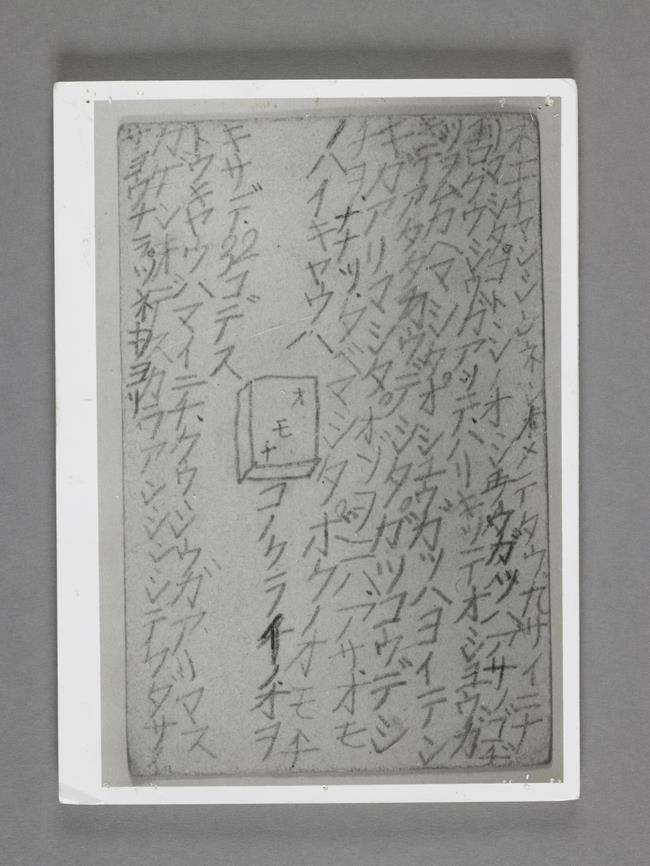 チヤンシンネンオメデタウゴザイ
マシタ。コトシノオシヨウガツハアサノゴジ
ガアッテハリキッテオシヨウガ
ツヲムカヘマシタ。オシユウガツハヨイテン
キデアタタカウデシタ。ガツコウデシ
キガアリマシタ。オゾウニハ、アサ、オモ
チヲ、ナナツ、タベマシタ。ボクノオモチ
ハイキヤウハ
オモチ
コノクライノオヲ
キサデ、32コデス
トウキヤウハマイニチ、クウシウガアリマス
ガゲンキデスカラアンシンシテクダサ
サヨウナラツネ ヨリ